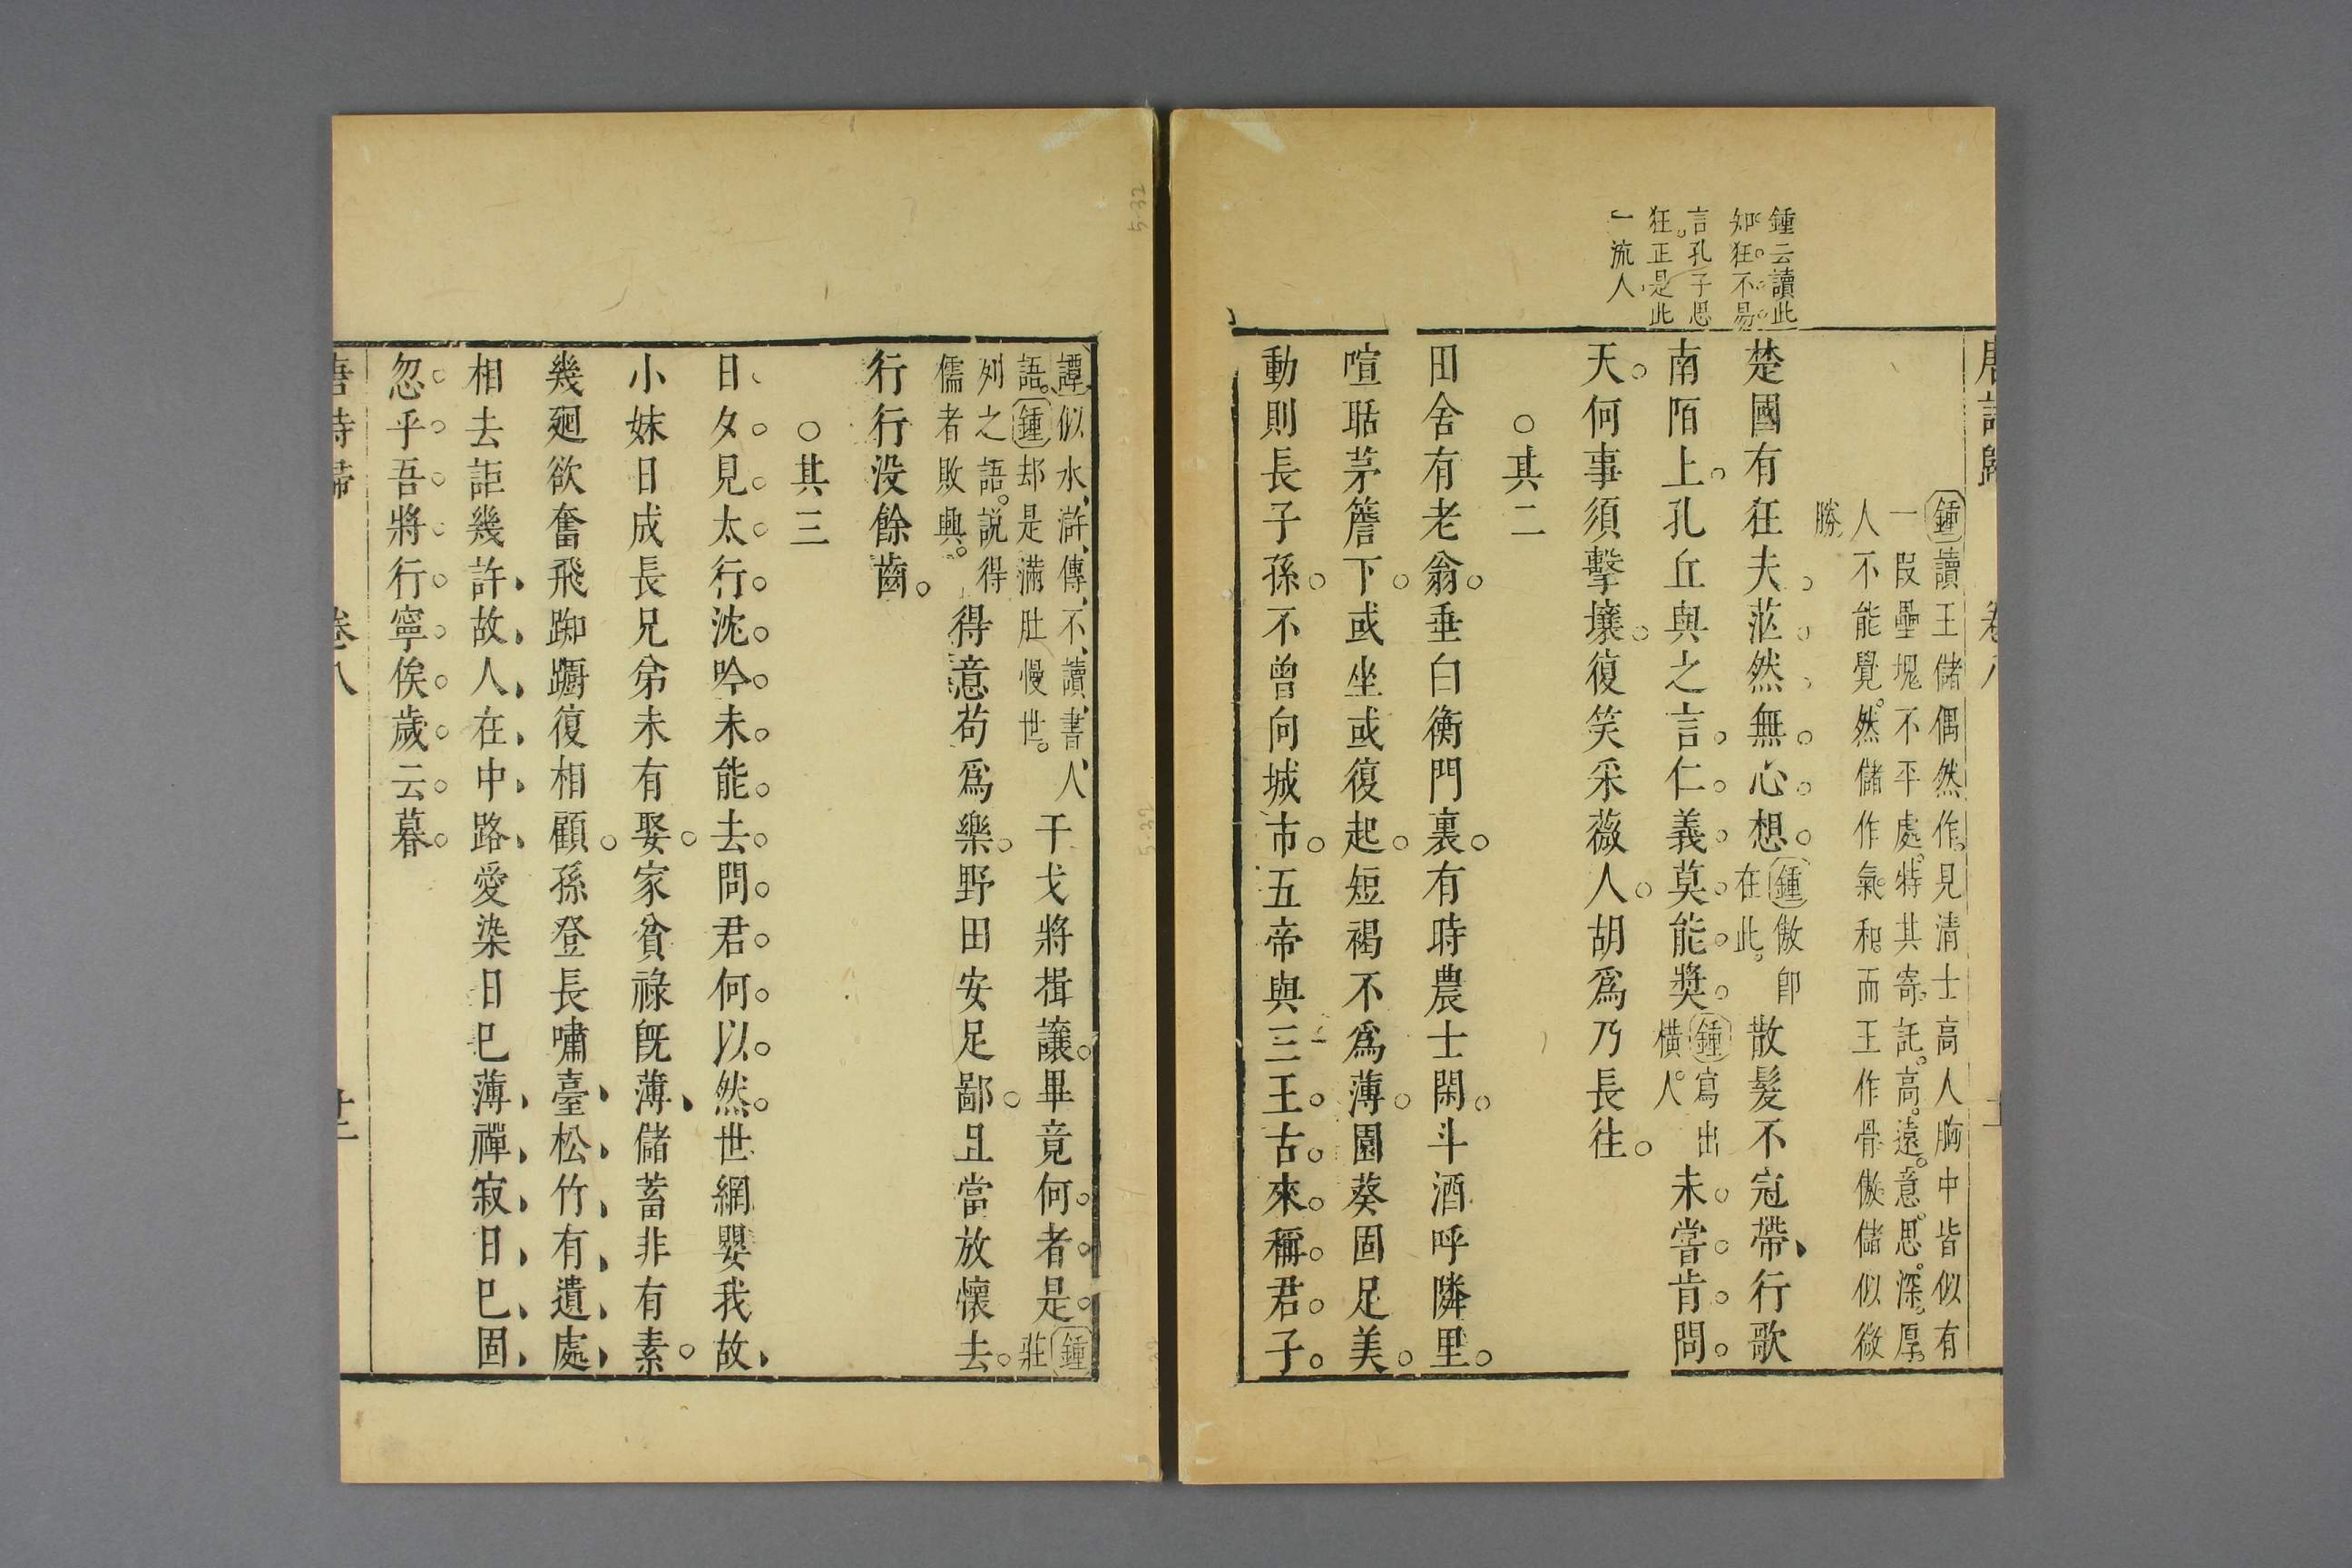 鍾云讀此
知狂不易
言孔子思
狂正是此
一流人
鍾讀王儲偶然作見清士高人胸中皆似有
一段壘塊不平處特其寄託高遠意思深厚
人不能覺然儲作氣和而王作骨傲儲似微
勝
楚國有狂夫茫然無心想鍾傲卽在此散髮不冠帶行歌
南陌上孔丘與之言仁義莫能獎鍾寫出橫人未嘗肯問
天何事須擊壤復笑采薇人胡爲乃長往
○其二
田舍有老翁垂白衡門裏有時農士閑斗酒呼隣里
喧聒茅簷下或坐或復起短褐不爲薄園葵固足美
動則長子孫不曾向城市五帝與三王古來稱君子
譚似水滸傳不讀書人
語鍾却是滿肚慢世
干戈將揖讓畢竟何者是鍾莊
列之語說得
儒者敗興
得意苟爲樂野田安足鄙且當放懷去
行行没餘齒
○其三
日夕見太行沈吟未能去問君何以然世網嬰我故
小妹日成長兄弟未有娶家貧祿旣薄儲蓄非有素
幾廻欲奮飛踟躕復相顧孫登長嘯臺松竹有遺處
相去詎幾許故人在中路愛染日已薄禪寂日已固
忽乎吾將行寧俟歲云暮
唐詩歸 卷八